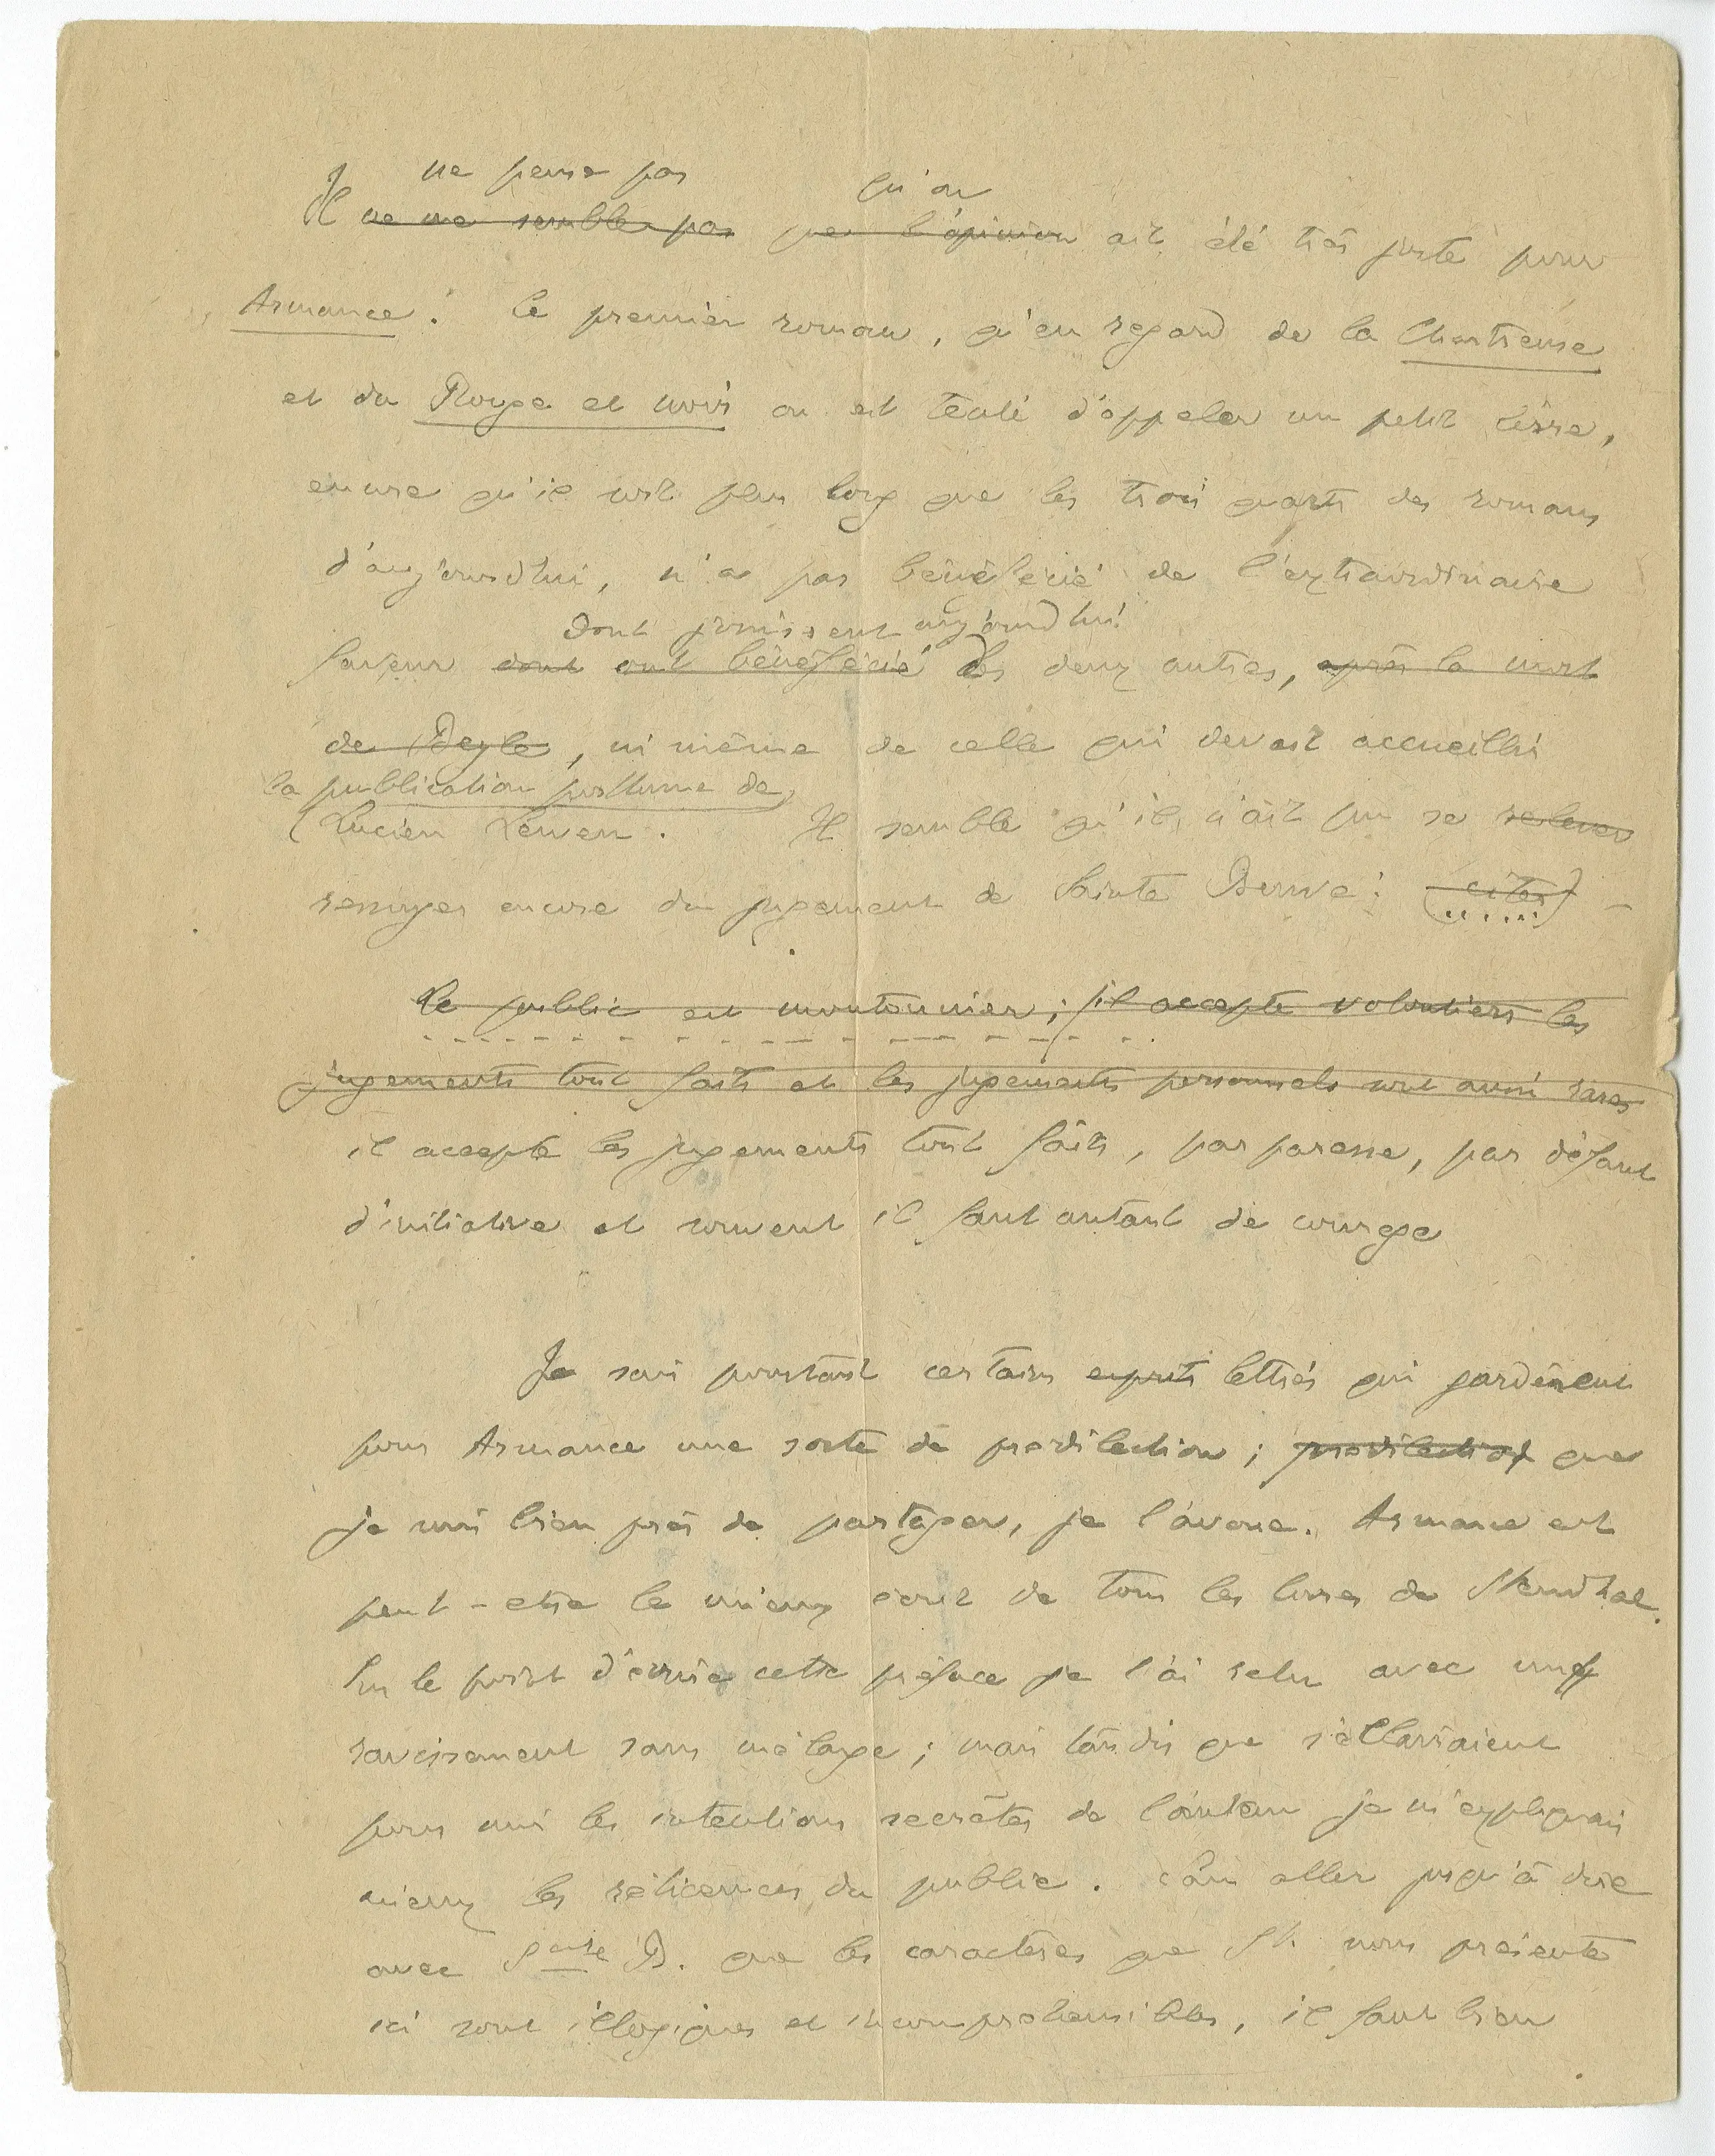 Je ne pense pas qu'on
Il ne me semble pas que l'opinion ait été très juste pour
Armance : ce premier roman, qu'en regard de la Chartreuse
et du Rouge et noir on est tenté d'appeler un petit livre,
encore qu'il soit plus long que les trois quarts des romans
d'aujourd'hui, n'a pas bénéficié de l'extraordinaire
dont jouissent aujourd'hui
faveur dont ont bénéficié les deux autres, après la mort
de Beyle, ni même de celle qui devait accueillir
la publication posthume de
Lucien Leuwen. Il semble qu'il n'ait pu se relever
encore du jugement de Sainte Beuve : (citer) –
Le public est moutonnier ; il accepte volontiers les
jugements tout faits et les jugements personnels sont aussi rares
il accepte les jugements tout faits, par paresse, par défaut
d'initiative et souvent il faut autant de courage
Je sais pourtant certains esprits lettrés qui gardèrent
pour Armance une sorte de predilection ; predilection que
je suis bien près de partager, je l'avoue. Armance est
peut-etre le mieux écrit de tous les livres de Stendhal.
Sur le point d'écrire cette préface je l'ai relu avec un
ravissement sans mélange ; mais tandis que s'éclairaient
pour moi les intentions secrètes de l'auteur je m'expliquais
mieux les réticences du public. Sans aller jusqu'à dire
avec Sainte B. que les caractères que St. nous présente
ici sont illogiques et incomprehensibles, il faut bien